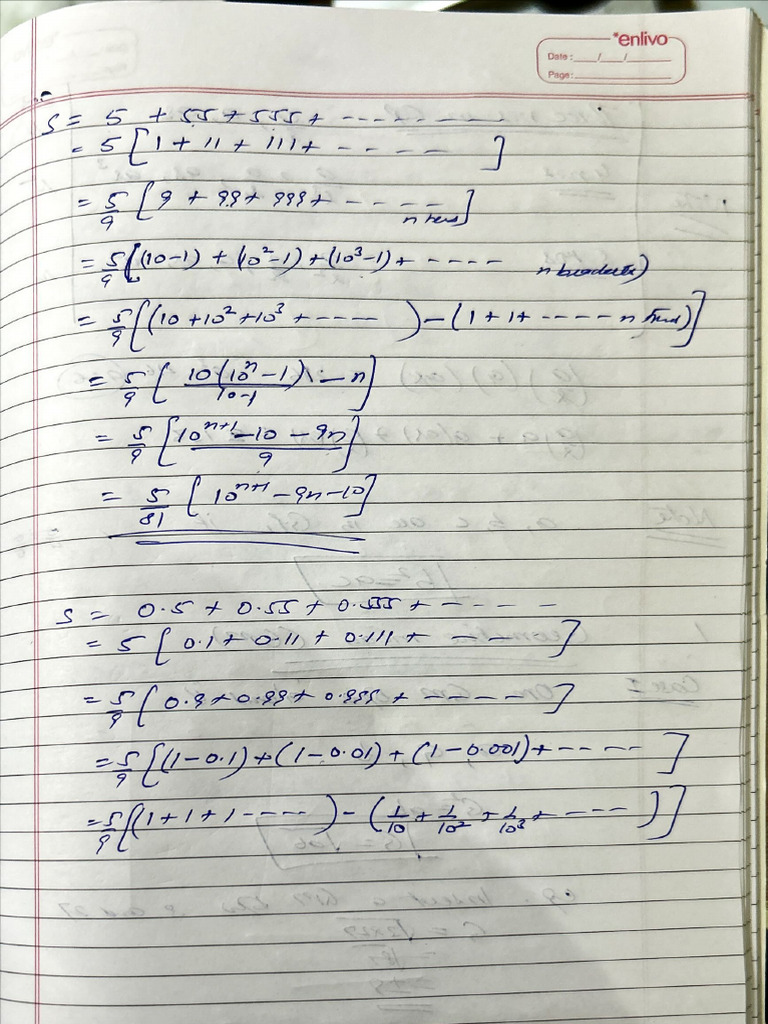 *enlivo
Date: ___/___/______
Page: ____________
S = 5 + 55 + 555 + - - - - - - -
= 5 [ 1 + 11 + 111 + - - - - - ]
= 5/9 [ 9 + 99 + 999 + - - - - - n terms]
= 5/9 [(10-1) + (10²-1) + (10³-1) + - - - - n brackets)
= 5/9 [(10 + 10² + 10³ + - - - - ) - (1 + 1 + - - - - n terms)]
= 5/9 [ 10(10ⁿ - 1)/10-1 - n]
= 5/9 [ 10ⁿ⁺¹ - 10 - 9n / 9 ]
= 5/81 [ 10ⁿ⁺¹ - 9n - 10]
S = 0.5 + 0.55 + 0.555 + - - - - -
= 5 [ 0.1 + 0.11 + 0.111 + - - - - ]
= 5/9 [ 0.9 + 0.99 + 0.999 + - - - - - ]
= 5/9 [(1 - 0.1) + (1 - 0.01) + (1 - 0.001) + - - - - ]
= 5/9 [(1 + 1 + 1 - - - - ) - (1/10 + 1/10² + 1/10³ + - - - )]